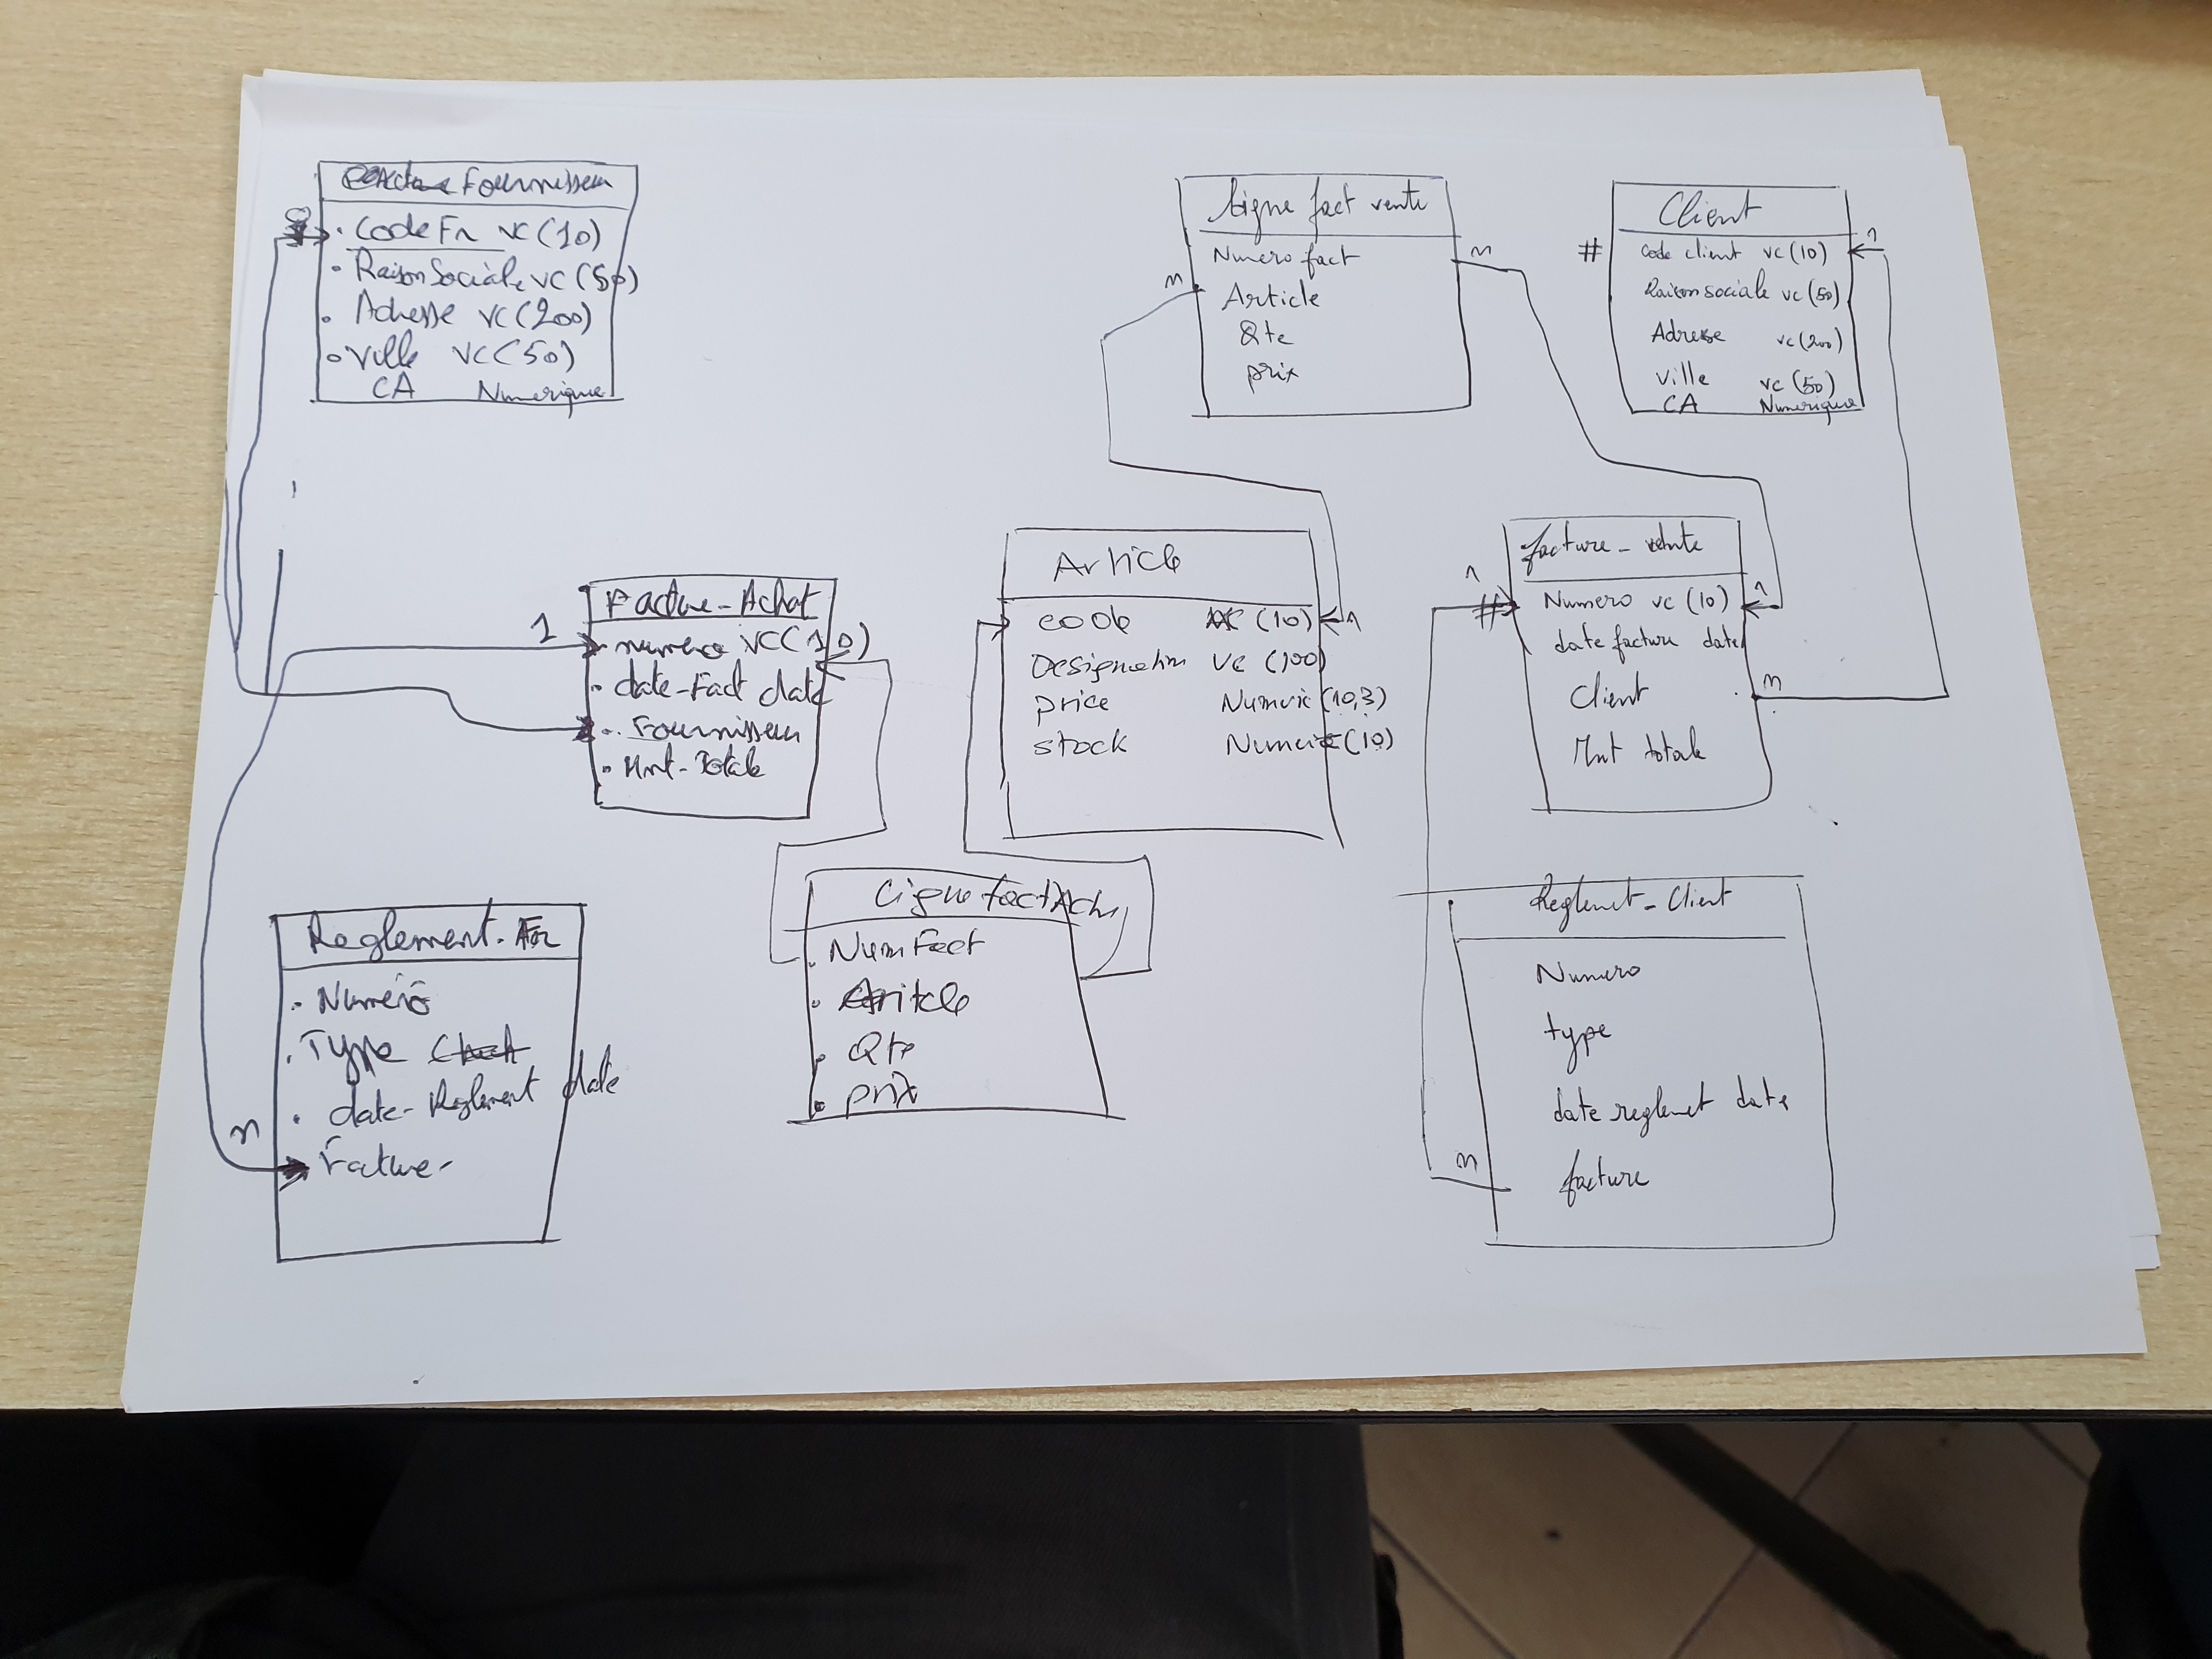 Fournisseur
Code Fn vc (10)
Raison Sociale vc (50)
Adresse vc (200)
Ville vc (50)
CA Numerique
ligne fact vente
Numero fact
Article
Qte
prix
n
n
Client
# code client vc (10)
Raison sociale vc (50)
Adresse vc (200)
ville vc (50)
CA Numerique
1
Facture-Achat
1
numero VC (10)
date-Fact date
Fournisseur
Mnt-Totale
Article
code (10)
Designation vc (100)
price Numeric (10,3)
stock Numeric (10)
1
facture-vente
1
# Numero vc (10)
1
date facture date
Client
n
Mnt totale
Reglement-Fr
Numero
Type
date-Reglement date
n
Facture-
Ligne fact Acha
Num Fact
Aritcle
Qte
prix
Reglemet-Client
Numero
type
date reglemet date
n
facture